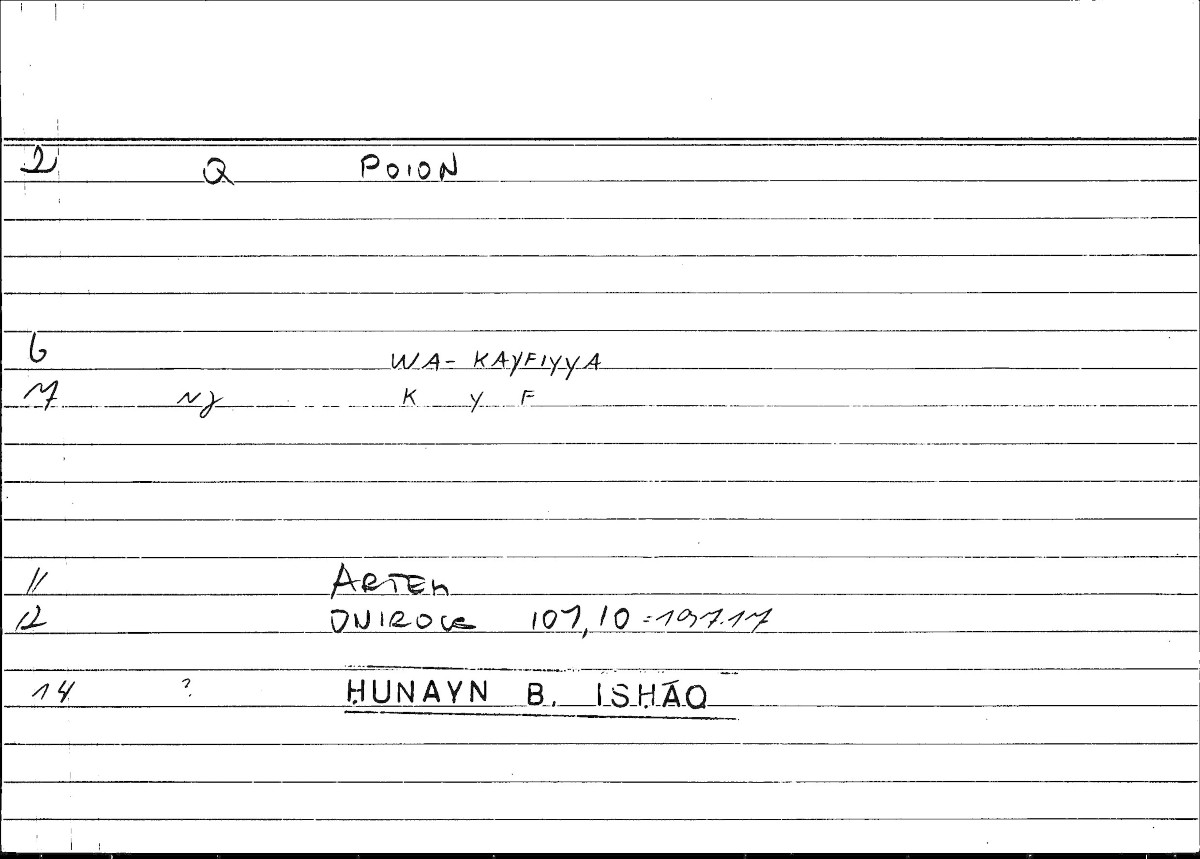 2 Q POION
6 WA- KAYFIYYA
7 NJ K Y F
11 ARTEM
12 ONIROCR 107,10 = 197.17
14 ? ḤUNAYN B. ISḤĀQ